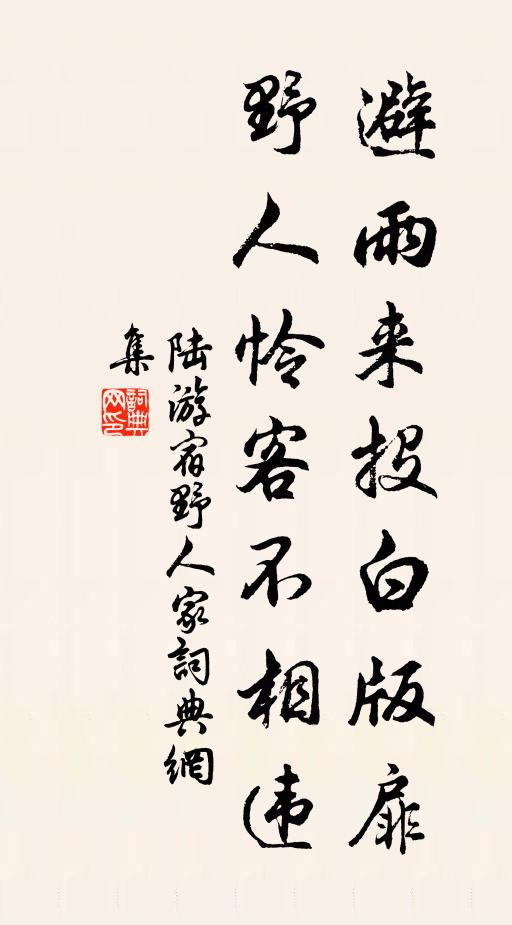 避雨来投白版扉
野人怜客不相违
陆游宿野人家詞典網
集
詞典网印